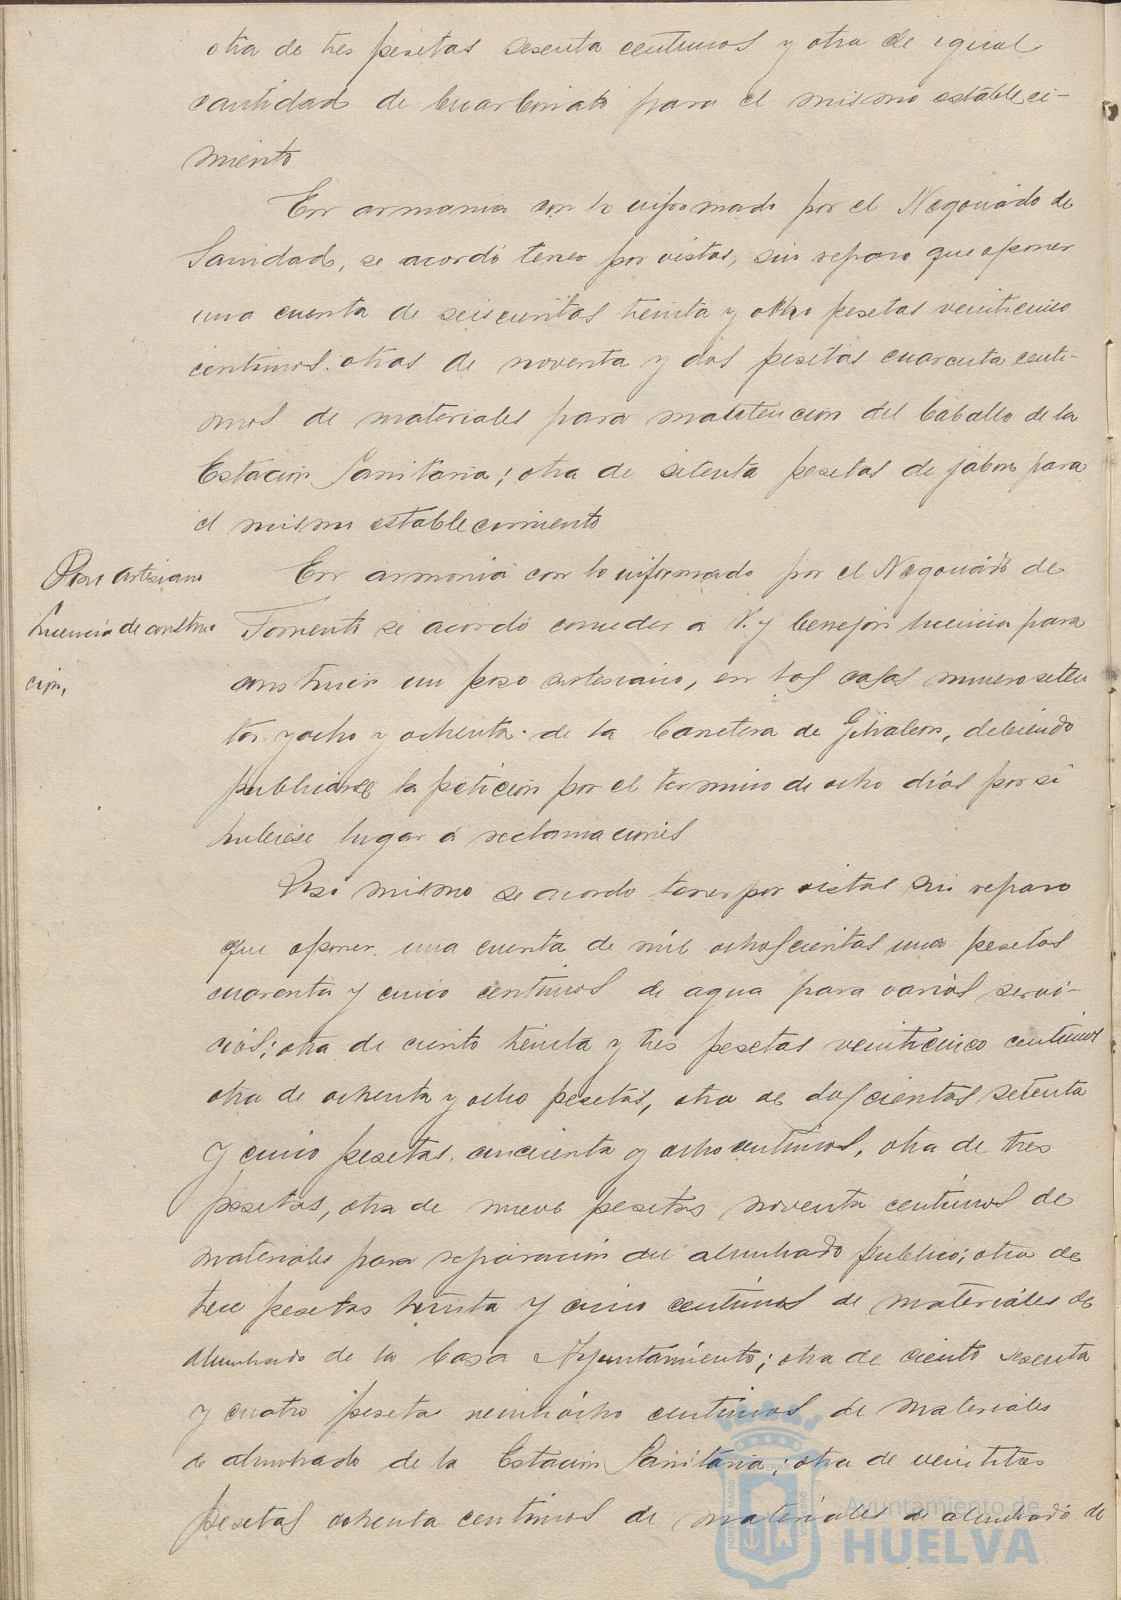 otra de tres pesetas sesenta centimos y otra de igual
cantidad de bicarbonato para el mismo estableci-
miento
En armonia con lo informado por el Negociado de
Sanidad, se acordó tener por vistas, sin reparo que oponer
una cuenta de seiscientas treinta y ocho pesetas veinticinco
centimos. otras de noventa y dos pesetas cuarenta centi-
mos de materiales para manutencion del Caballo de la
Estacion Sanitaria; otra de setenta pesetas de jabon para
el mismo establecimiento
Poso artesiano
Licencia de construc
cion,
En armonia con lo informado por el Negociado de
Fomento se acordó conceder a V. y licencia para
construir un poso artesiano, en las casas numero seten
ta y ocho y ochenta de la Carretera de Gibraleon, debiendo
publicarse la peticion por el termino de ocho dias por si
hubiese lugar á reclamaciones
Asi mismo se acordo tener por vistas sin reparo
que oponer una cuenta de mil ochoscientas una pesetas
cuarenta y cinco centimos de agua para varios servi-
cios; otra de ciento treinta y tres pesetas veinticinco centimos
otra de ochenta y ocho pesetas, otra de doscientas setenta
y cinco pesetas cincuenta y ocho centimos, otra de tres
pesetas, otra de nueve pesetas noventa centimos de
materiales para reparacion del alumbrado publico; otra de
trece pesetas treinta y cinco centimos de materiales de
alumbrado de la Casa Ayuntamiento; otra de ciento sesenta
y cuatro pesetas veintiocho centimos de materiales
de alumbrado de la Estacion Sanitaria; otra de veintitres
pesetas ochenta centimos de materiales de alumbrado de
Ayuntamiento de
HUELVA